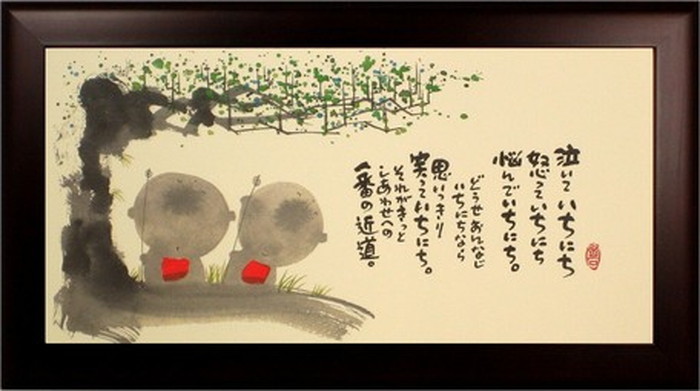 泣いていちにち
怒っていちにち
悩んでいちにち。
どうせおんなじ
いちにちなら
思いっきり
笑っていちにち。
それがきっと
しあわせへの
一番の近道。